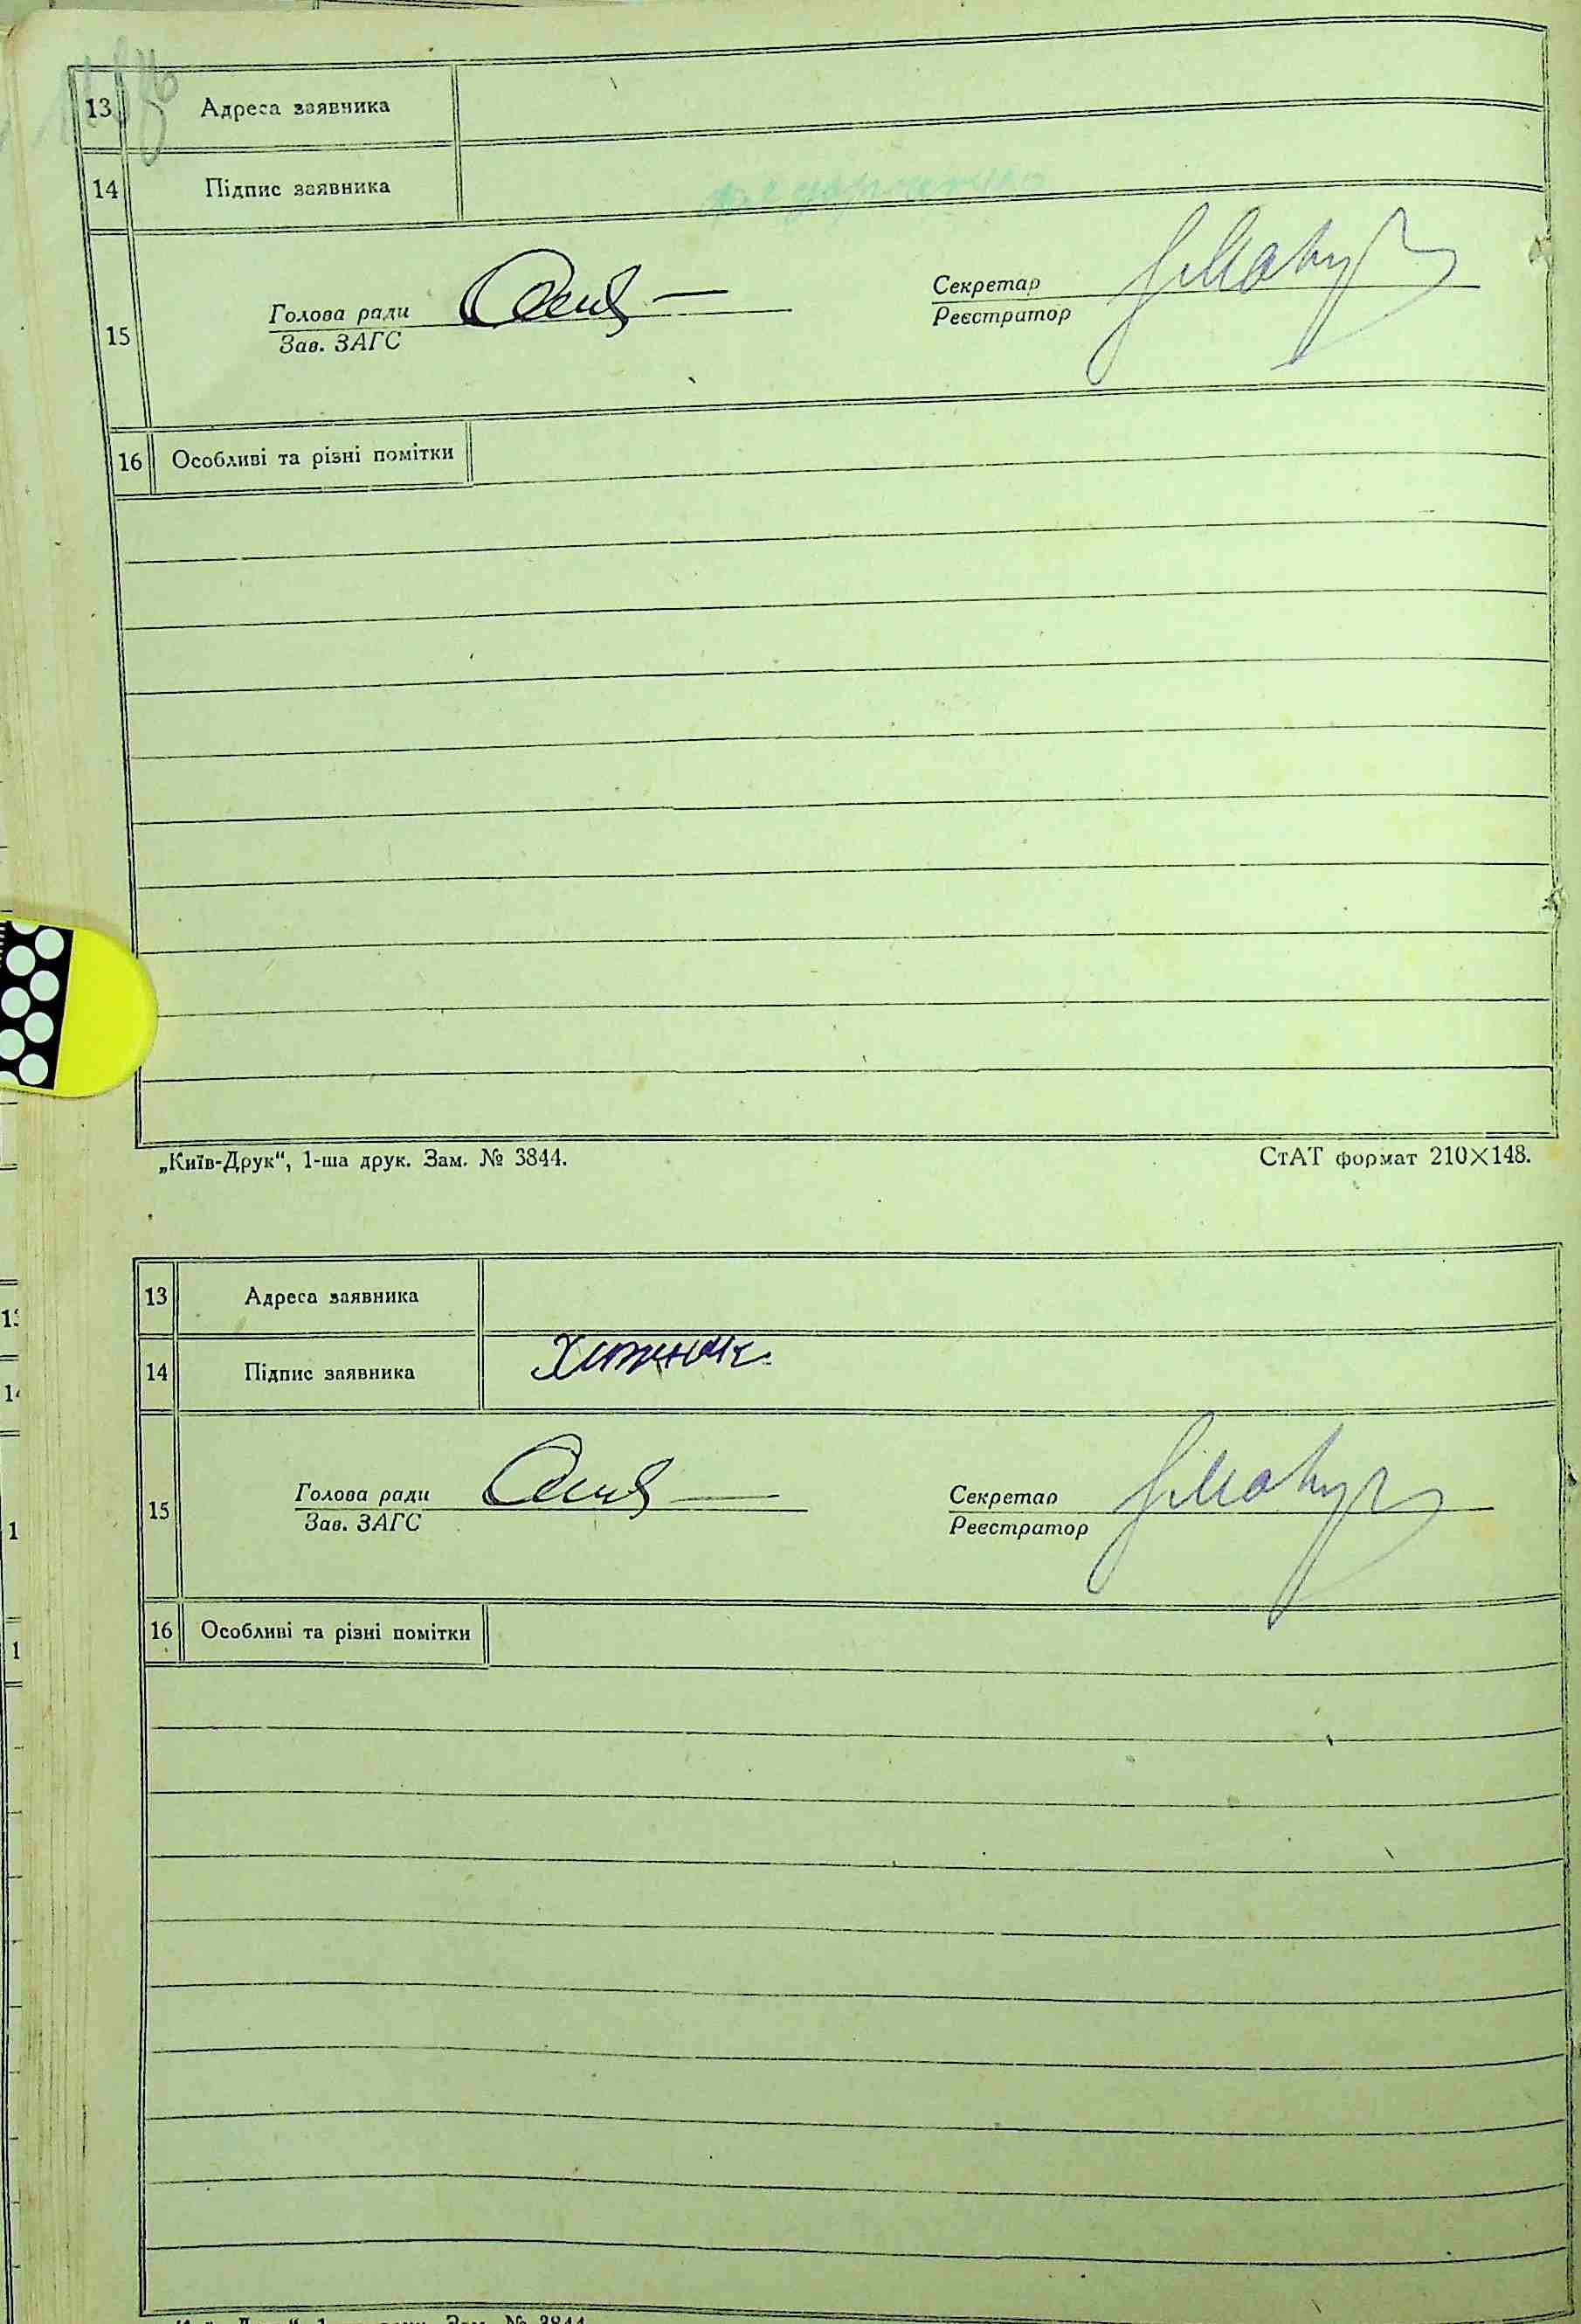 13 Адреса заявника
14 Підпис заявника
15 Голова ради Секретар
Зав. ЗАГС Реєстратор
16 Особливі та різні помітки
„Київ-Друк“, 1-ша друк. Зам. № 3844. СтАТ формат 210×148.
13 Адреса заявника
14 Підпис заявника Хижняк
15 Голова ради Секретар
Зав. ЗАГС Реєстратор
16 Особливі та різні помітки